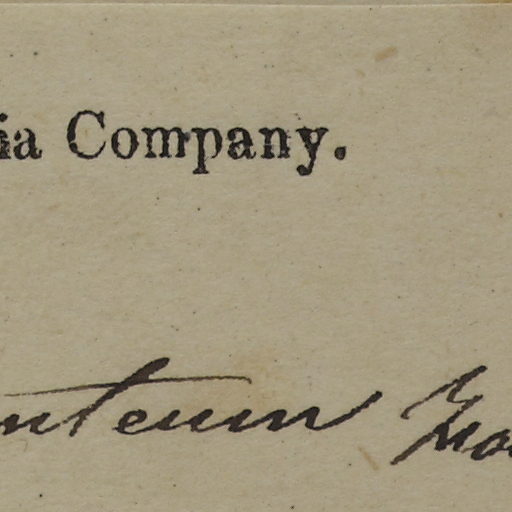 ia Company.
nteum